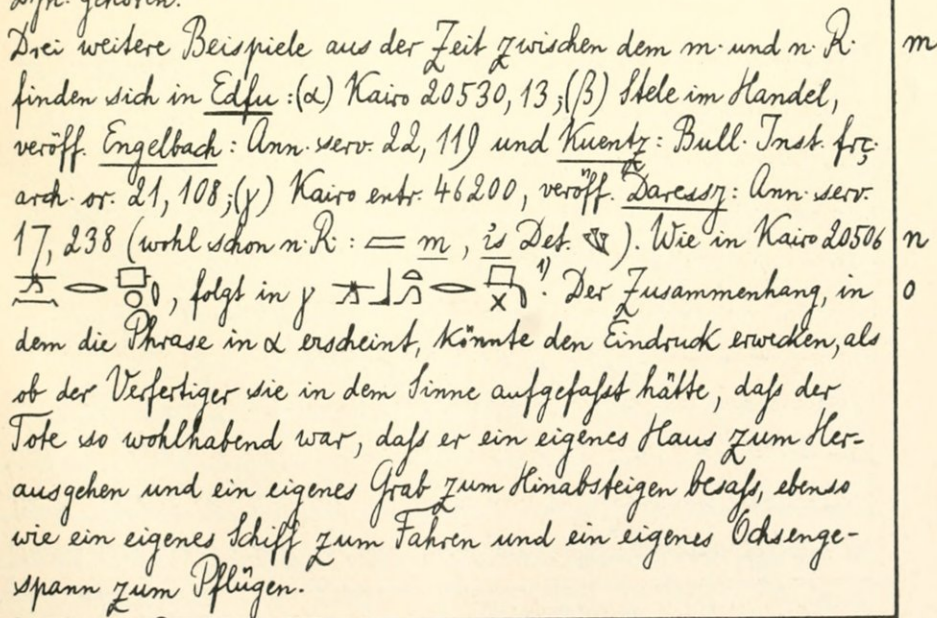 Drei weitere Beispiele aus der Zeit zwischen dem m. und n. R. m
finden sich in Edfu : (α) Kairo 20530, 13 ; (β) Stele im Handel,
veröff. Engelbach : Ann. serv. 22, 119 und Kuentz : Bull. Inst. frç.
arch. or. 21, 108 ; (γ) Kairo entr. 46200, veröff. Daressy : Ann. serv.
17, 238 (wohl schon n. R. : m , is Det. ). Wie in Kairo 20506 n
, folgt in γ 1). Der Zusammenhang, in o
dem die Phrase in α erscheint, könnte den Eindruck erwecken, als
ob der Verfertiger sie in dem Sinne aufgefaßt hätte, daß der
Tote so wohlhabend war, daß er ein eigenes Haus zum Her-
ausgehen und ein eigenes Grab zum Hinabsteigen besaß, ebenso
wie ein eigenes Schiff zum Fahren und ein eigenes Ochsenge-
spann zum Pflügen.